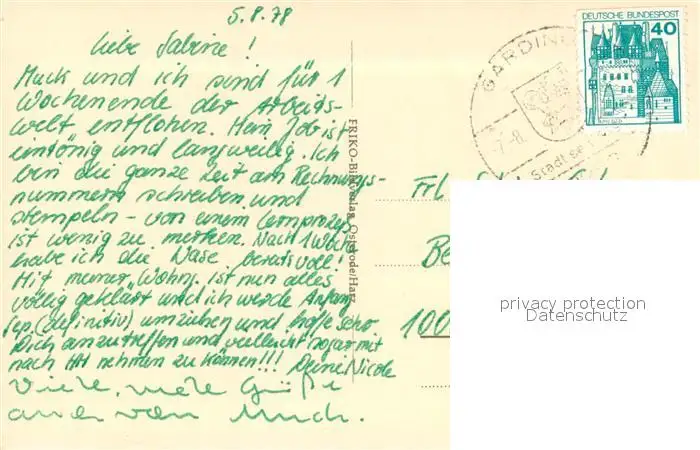 5.8.78
Liebe Sabine!
Muck und ich sind für 1
Wochenende der Arbeits-
welt entflohen. Mein Job ist
eintönig und langweilig. Ich
bin die ganze Zeit am Rechnungs-
nummern schreiben und
stempeln - von einem Lernprozeß
ist wenig zu merken. Nach 1 Woche
habe ich die Nase bereits voll!
Mit meiner Wohng. ist nun alles
völlig geklärt und ich werde Anfang
Sep. (definitiv) umziehen und hoffe sehr
Dich anzutreffen und vielleicht sogar mit
nach HH nehmen zu können!!! Deine Nicole
Viele, viele Grüße
auch von Muck.
FRIKO-Bildverlag, Osterode/Harz
DEUTSCHE BUNDESPOST
40
GARDING
-7.-8.
Stadt seit
Frl.
Be
100
privacy protection
Datenschutz